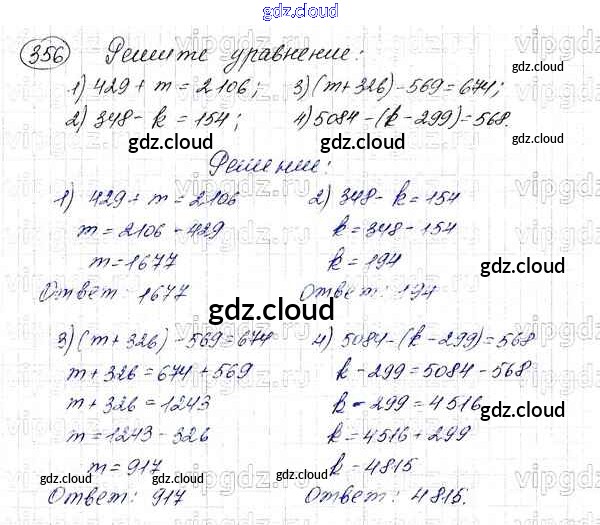 gdz.cloud
356 Решите уравнение:
1) 429 + m = 2106; 3) (m+326) - 569 = 674;
2) 348 - k = 154; 4) 5084 - (k - 299) = 568.
gdz.cloud gdz.cloud
Решение:
gdz.cloud gdz.cloud
1) 429 + m = 2106
m = 2106 - 429
m = 1677
Ответ: 1677
2) 348 - k = 154
k = 348 - 154
k = 194
gdz.cloud
Ответ: 194
gdz.cloud
3) (m + 326) - 569 = 674
m + 326 = 674 + 569
m + 326 = 1243
m = 1243 - 326
m = 917
gdz.cloud gdz.cloud
Ответ: 917
4) 5084 - (k - 299) = 568
gdz.cloud
k - 299 = 5084 - 568
k - 299 = 4516
gdz.cloud
k = 4516 + 299
k = 4815
gdz.cloud
Ответ: 4815.